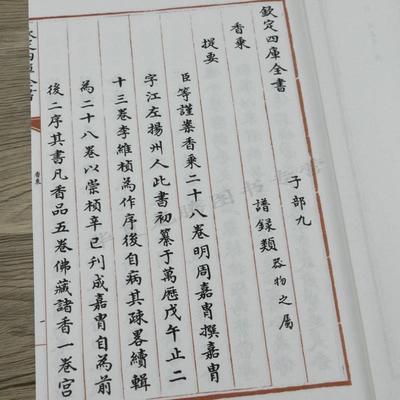 欽定四庫全書
子部九
香乘
譜録類 器物之屬
提要
臣等謹案香乘二十八卷明周嘉胄撰嘉胄
字江左揚州人此書初纂于萬歷戊午止二
十三卷李維楨為作序後自病其疎畧續輯
為二十八卷以崇禎辛已刋成嘉胄自為前
後二序其書凡香品五卷佛藏諸香一卷宫
香乘